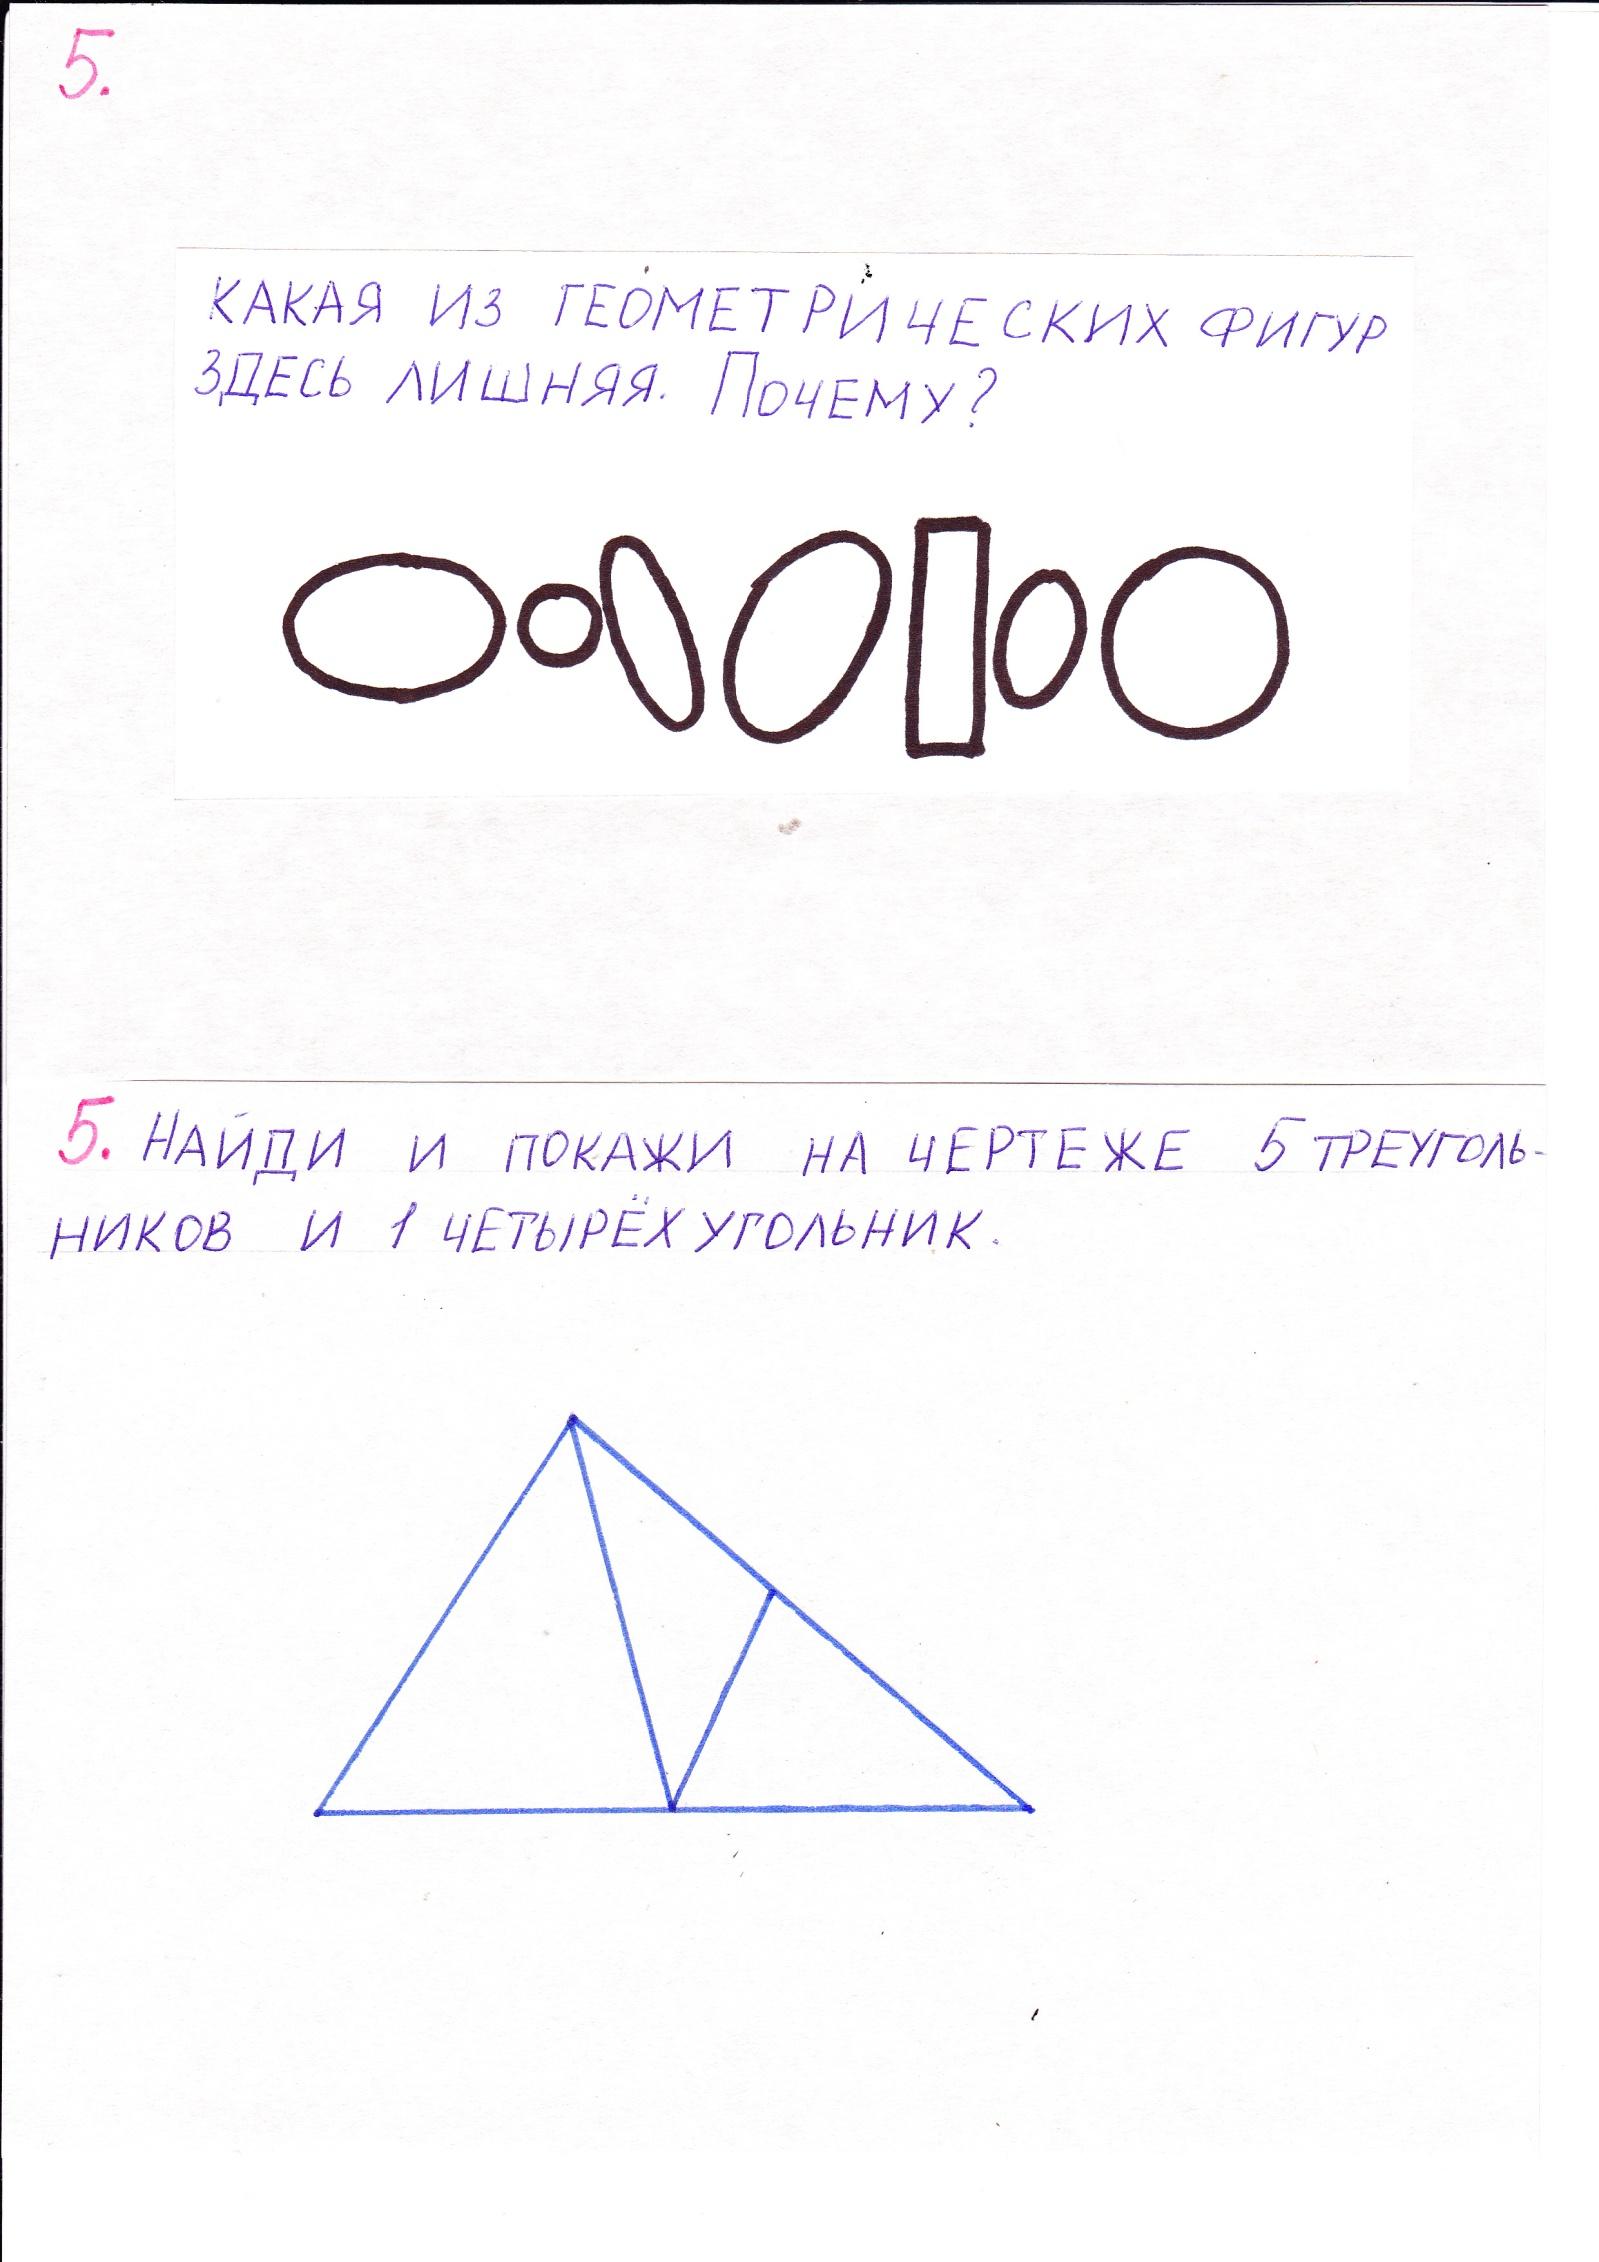 5.
КАКАЯ ИЗ ГЕОМЕТРИЧЕСКИХ ФИГУР
ЗДЕСЬ ЛИШНЯЯ. ПОЧЕМУ?
5. НАЙДИ И ПОКАЖИ НА ЧЕРТЕЖЕ 5 ТРЕУГОЛЬ-
НИКОВ И 1 ЧЕТЫРЁХУГОЛЬНИК.